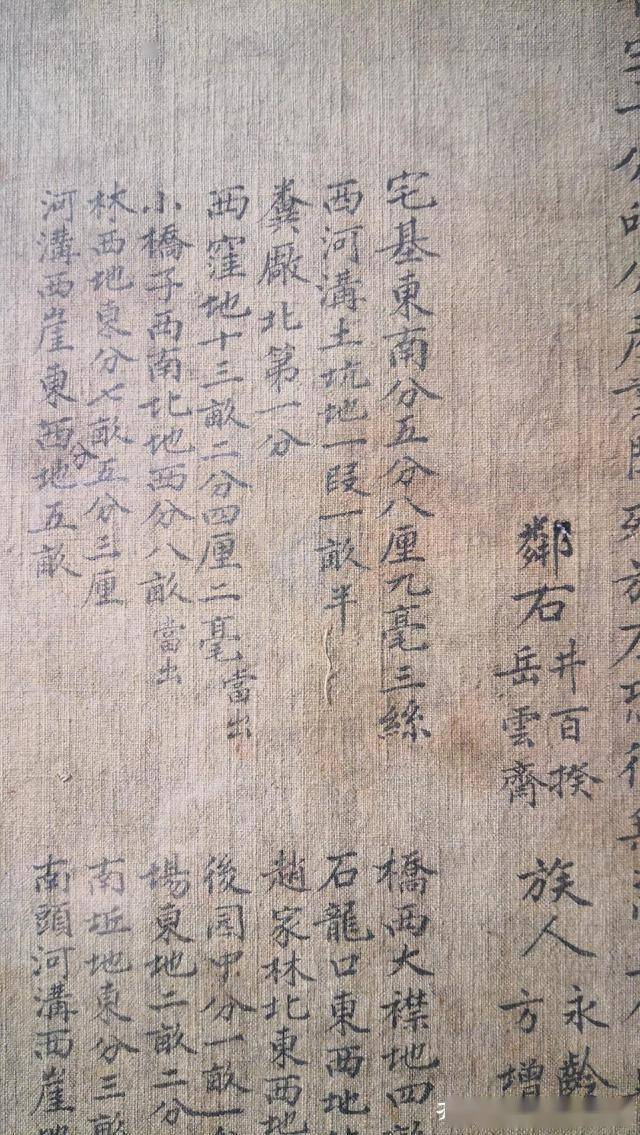 鄰右 井百揆 岳雲齋
族人 永齡 方增
宅基東南分五分八厘九毫三絲
西河溝土坑地一段一畝半
糞廠北第一分
西窪地十三畝二分四厘二毫當出
小橋子西南北地西分八畝當出
林西地東分七畝五分三厘
河溝西崖東西地分五畝
橋西大襟地四
石龍口東西地
趙家林北東西地
後園中分一畝一
場東地二畝二分
南坵地東分三畝
南頭河溝西崖